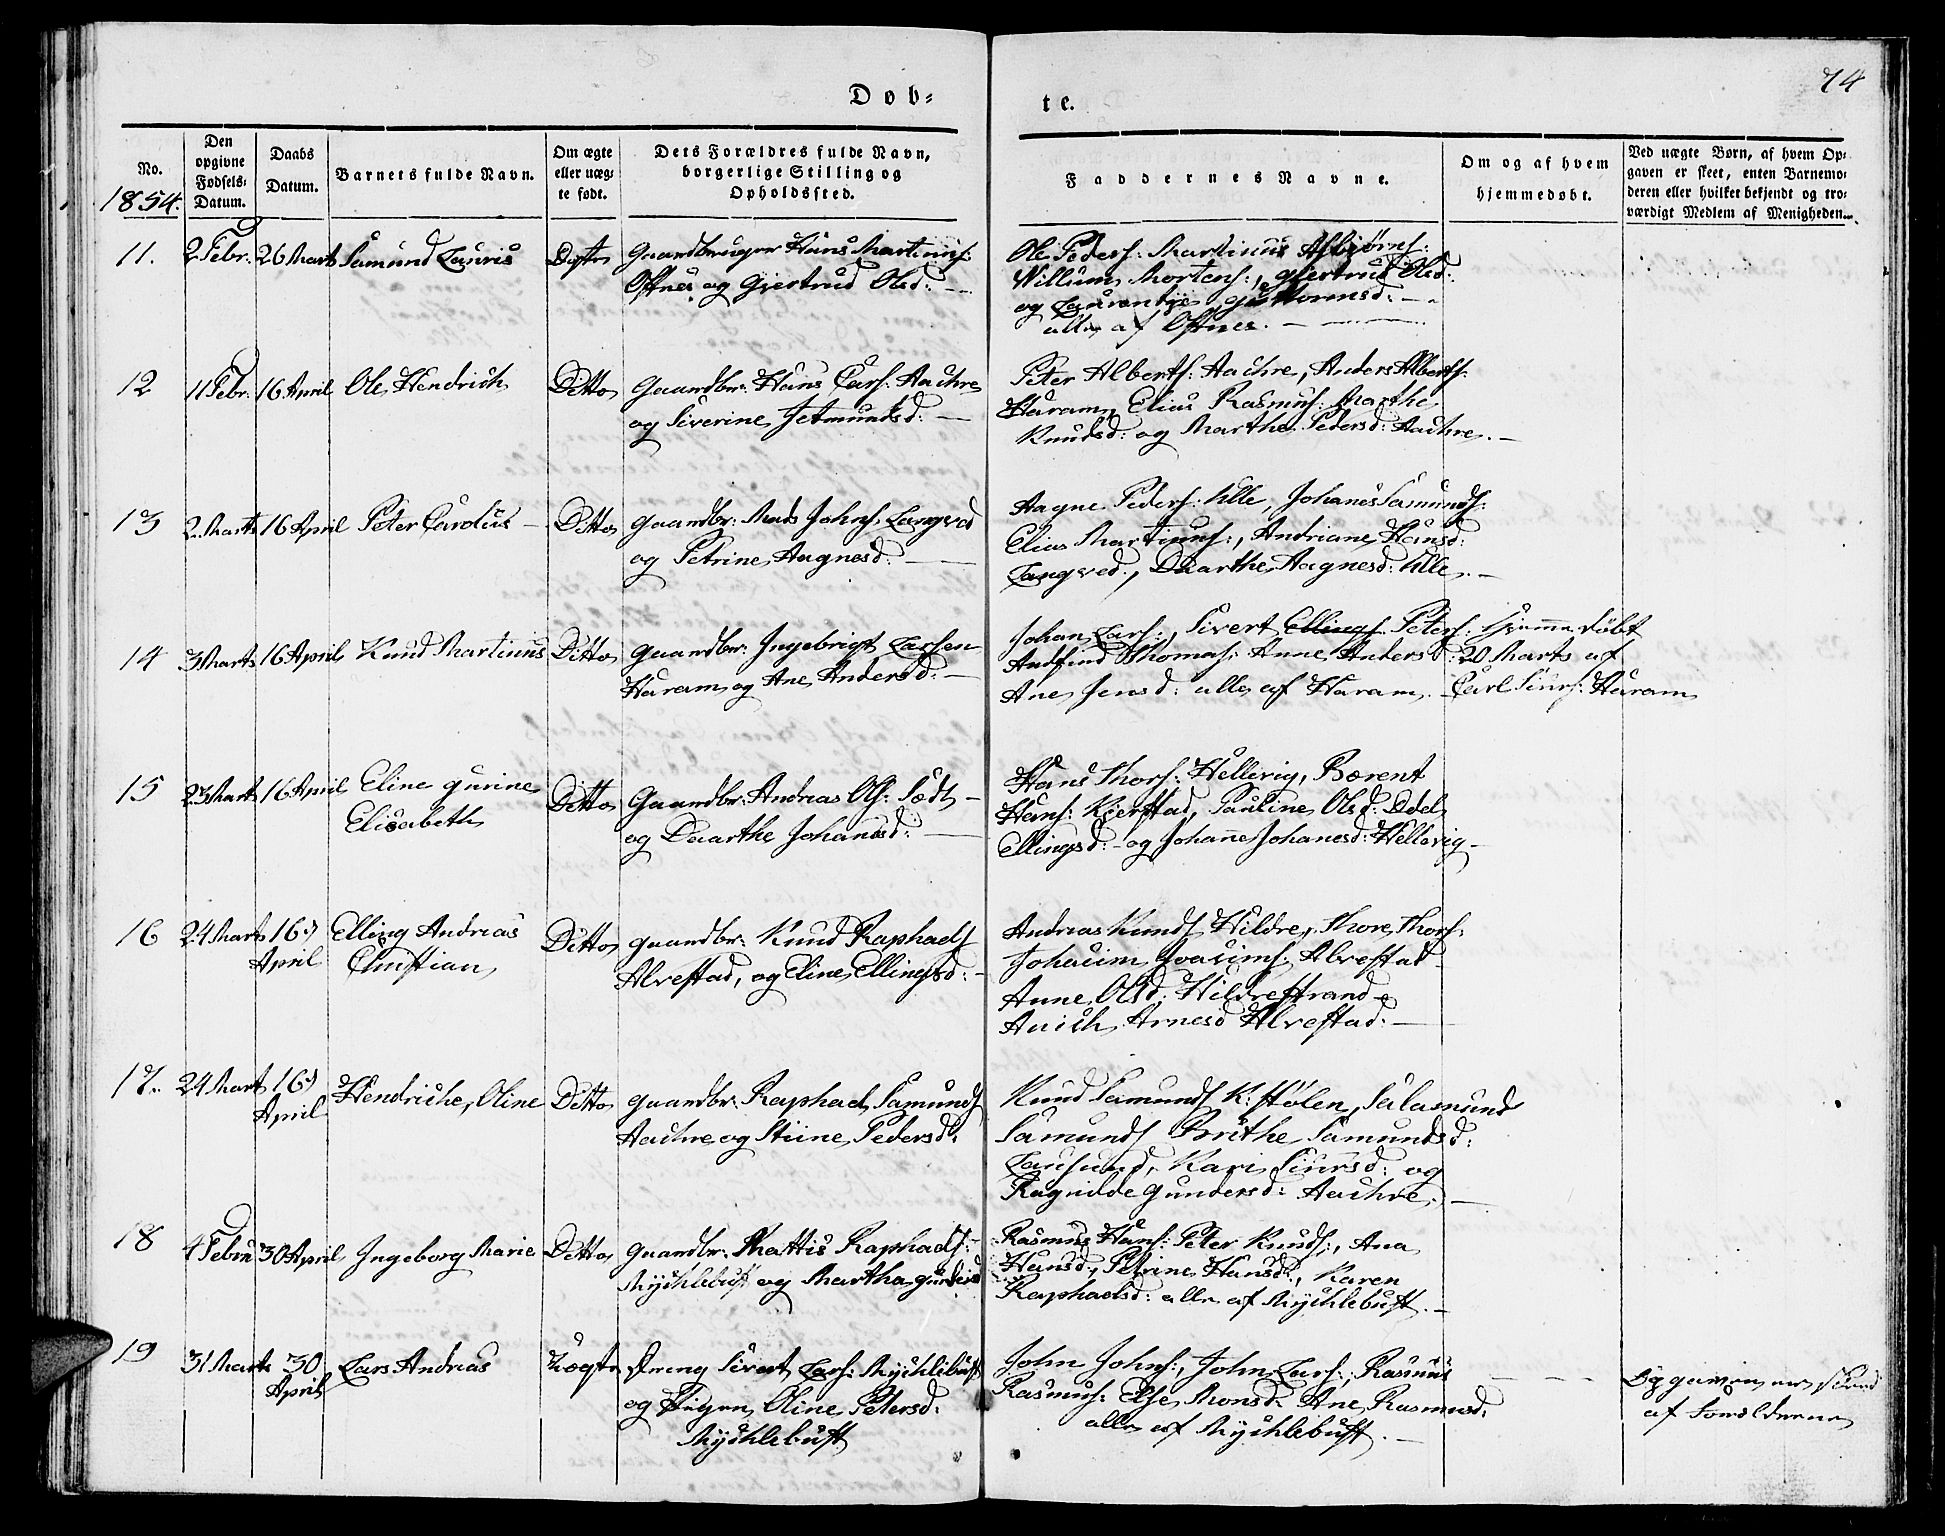 Døb-
te.
74
No.
1854.
Den opgivne Fødsels-Datum.
Daabs Datum.
Barnets fulde Navn.
Om ægte eller uægte født.
Dets Forældres fulde Navn, borgerlige Stilling og Opholdssted.
Faddernes Navne.
Om og af hvem hjemmedøbt.
Ved uægte Børn, af hvem Opgaven er skeet, enten Barnemoderen eller hvilket bekjendt og troværdigt Medlem af Menigheden.
11. 2 Febr: 26 Marts Samund Lauris
Gaardbruger Hans Martinus:
og Giertrud Olsd: —
Ole Peders: Martinus Asbjørns:
Willum Mortens:, Giertrud Olsd:
og
alle af
12 11 Febr: 16 April Ole Hendrich Ditto
Gaardbr: Hans Lars: Aachre
og Siverine Jetmundsd: —
Peter Alberts: Aachre, Anders Alberts:
Haram, Elias Rasmus: Marthe
Knudsd: og Marthe Pedersd: Aachre. —
13 2 Marts 16 April Peter Carolus — Ditto
Gaardbr: Mads Johns: Langved
og Petrine Aagnesd: —
Aagne Peders: Ulle, Johanes Samunds:
Elias Martinus:, Andriane Hansd:
Langved, Daarthe Aagnesd: Ulle. —
14 3 Marts 16 April Knud Martinus Ditto
Gaardbr: Ingebrigt Larsen
Haram og Ane Andersd: —
Johan Lars:, Sivert Ellings Peters:
Andfind Thomas: Anne Andersd:
Ane Jensd: alle af Haram. —
Hjemmedøbt
20 Marts af
Carl Siurs: Haram
15 23 Marts 16 April Eline Gurine
Elisabeth
Ditto
Gaardbr: Andreas Ols: —
og Daarthe Johansd: —
Hans Thors: Hellevig, Bærent
Hans: Kierstad, Pauline Olsd:
Ellingsd: og Johanne Johanesd: Hellevig —
16 24 Marts 16 April Elling Andreas
Christian
Ditto
Gaardbr: Knud Raphaels
Alvestad, og Eline Ellingsd: —
Andreas Knuds Hildre, Thore Thors:
Johacim Joacims: Alvestad
Anne Olsd: Hildrestrand
Arnesd Alvestad: —
17. 24 Mart 16 April Hendriche Oline Ditto
Gaardbr: Raphael Samunds
Aachre og Stiine Pedersd:
Knud Samunds K: stølen, Salamund
Samunds Brithe Samundsd:
Kari Siursd: og
Ragnilde Gundersd: Aachre. —
18 4 Febru 30 April Ingeborg Marie Ditto
Gaardbr: Mattis Raphaels:
Mychlebust og Martha
Rasmus Hans: Peter Knuds:, Ana
Hansd:, Petrine Hansd:, Karen
Raphaelsd: alle af Mychlebust. —
19 31 Marts 30 April Lars Andreas Uægte
Dreng Sivert Lars: Mychlebust
og Pigen Oline Petersd:
Mychlebust
John Johns:, John Lars:, Rasmus
Rasmus: Else Monsd: Ane Rasmusd:
alle af Mychlebust. —
Opgaven er skeed
af Forældrene